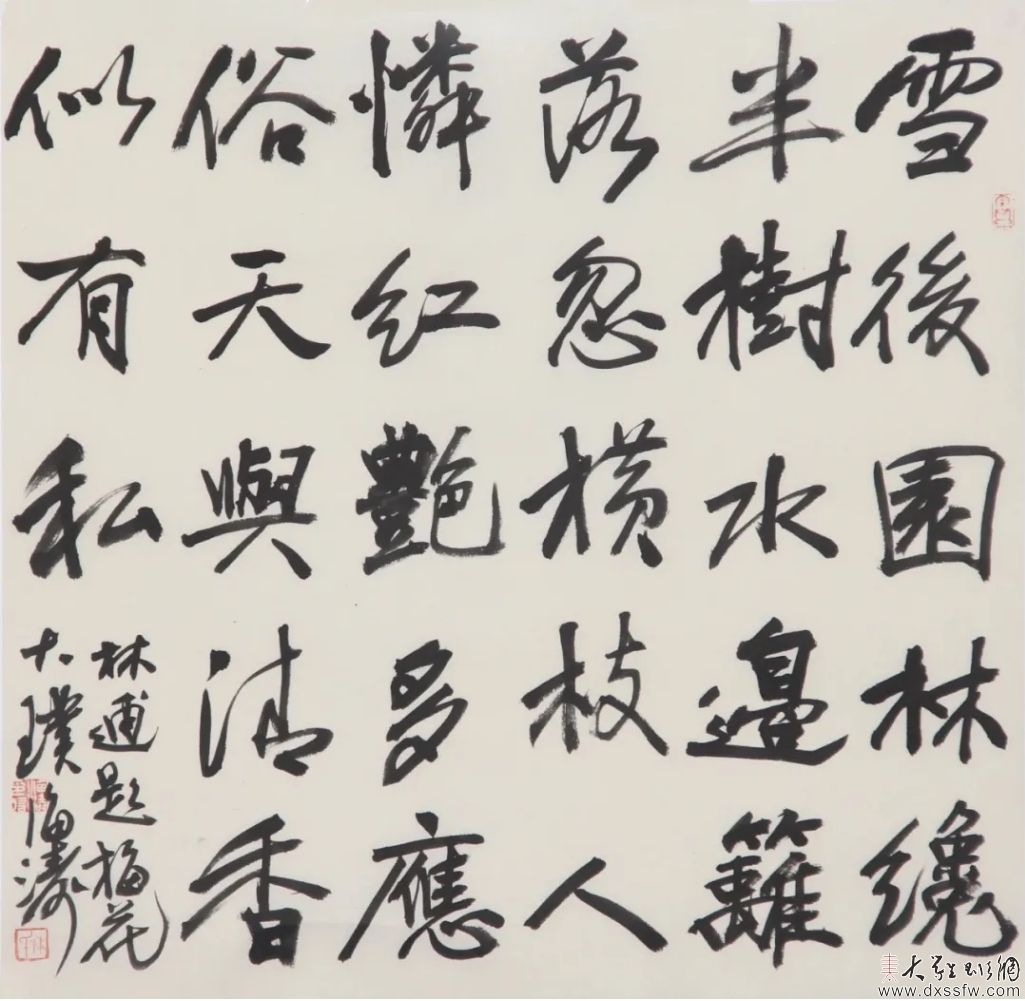 雪後園林纔
半樹水邊籬
落忽橫枝人
憐紅艷多應
俗天與清香
似有私
林逋題梅花
大璞
www.dxssfw.com